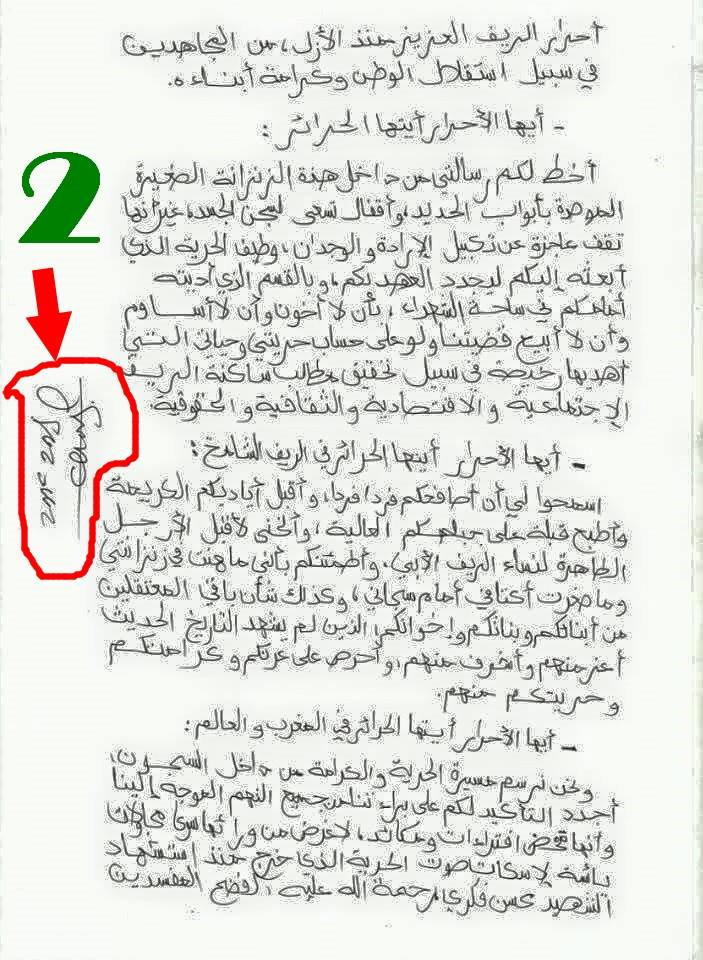 أحرار الريف العزيز منذ الأزل، من المجاهدين
في سبيل استقلال الوطن وكرامة أبناءه.
- أيها الأحرار أيتها الحرائر :
أخط لكم رسالتي من داخل هذه الزنزانة الصغيرة
الموصدة بأبواب الحديد، وأقفال تسعى لسجن الجسد، غير أنها
تقف عاجزة عن تكبيل الإرادة والوجدان، وطيف الحرية الذي
أبعثه إليكم ليجدد العهد بكم، وبالقسم الذي أديته
أمامكم في ساحة الشهداء، بأن لا أخون وأن لا أساوم
وأن لا أبيع قضيتنا ولو على حساب حريتي وحياتي التي
أهديها رخيصة في سبيل تحقيق مطالب ساكنة الريف
الإجتماعية والاقتصادية والثقافية والحقوقية.
- أيها الأحرار أيتها الحرائر في الريف الشامخ :
اسمحوا لي أن أصافحكم فردا فردا، وأقبل أياديكم الكريمة
وأطبع قبلة على جباهكم العالية، وأنحني لأقبل الأرجل
الطاهرة لنساء الريف الأبي. وأطمئنكم بأني ما هنت في زنزانتي
وما خرت أكتافي أمام سجاني، وكذلك شأن باقي المعتقلين
من أبنائكم وبناتكم وإخوانكم، الذين لم يشهد التاريخ الحديث
أعز منهم وأشرف منهم، وأحرص على عزتكم وكرامتكم
وحريتكم منهم.
- أيها الأحرار أيتها الحرائر في المغرب والعالم :
ونحن نرسم مسيرة الحرية والكرامة من داخل السجون،
أجدد التأكيد لكم على براءتنا من جميع التهم الموجه إلينا
وأنها محض افتراءات ومكائد، لا غرض من ورائها سوى محاولات
يائسة لإسكات صوت الحرية الذي خرج منذ استشهاد
الشهيد محسن فكري رحمة الله عليه، لفضح المفسدين
2